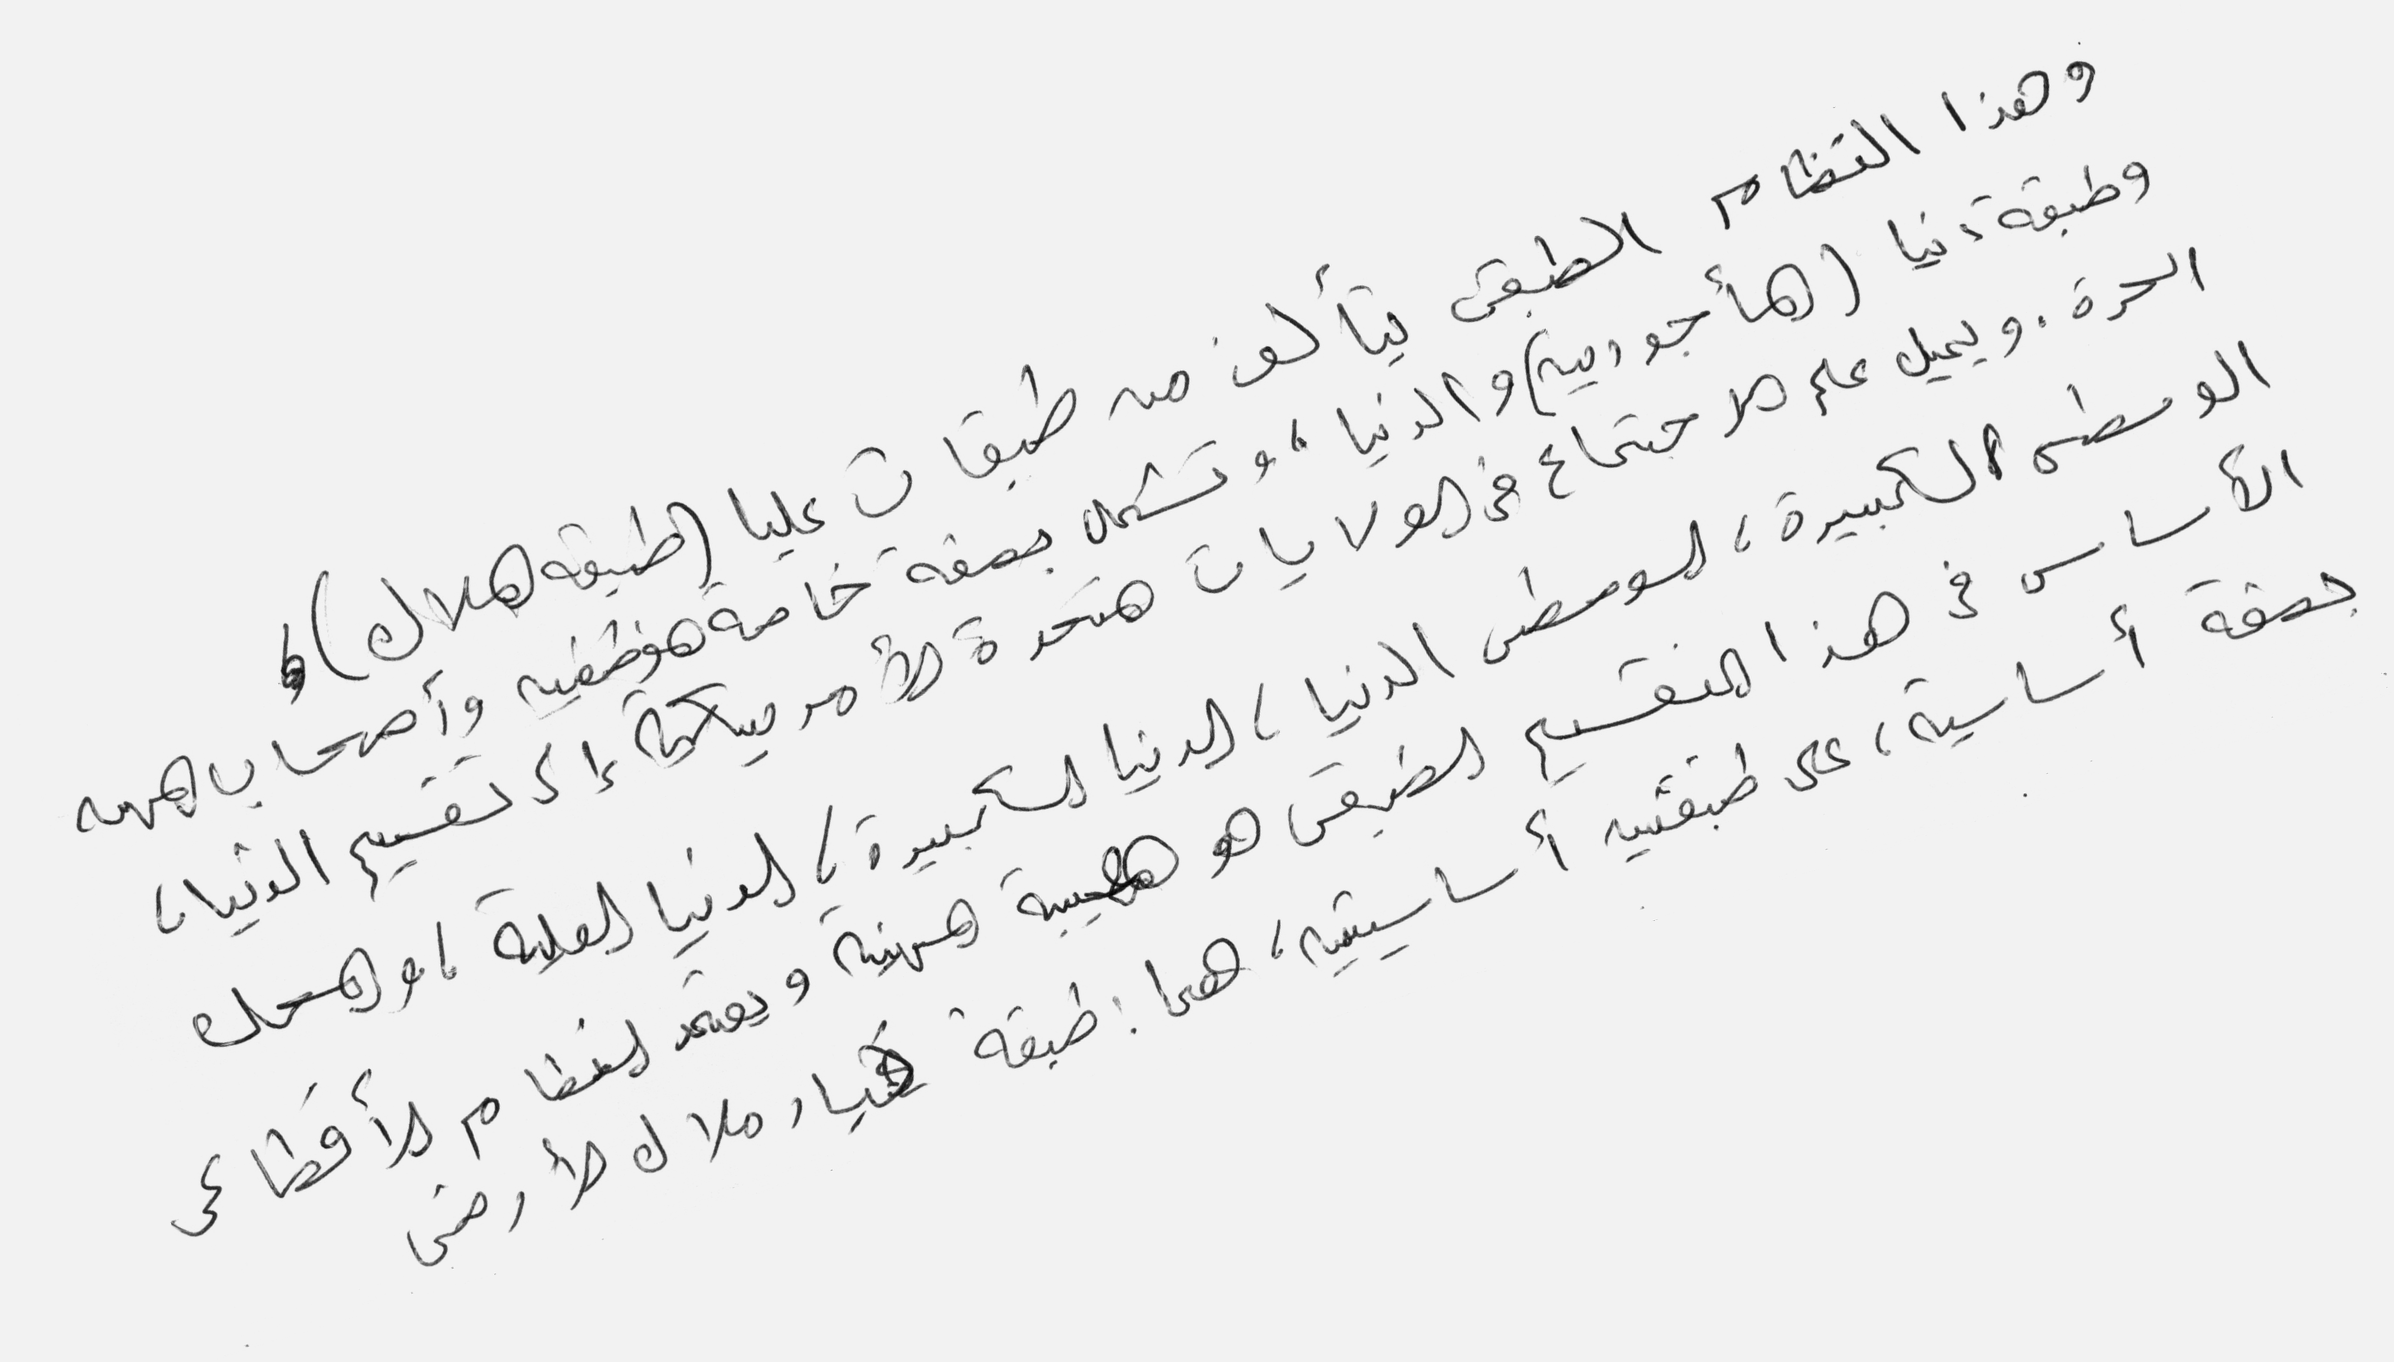 وهذا النظام الطبقى يتألف من طبقات عليا (طبقة هلاك) و
وطبقة دنيا (هأجورين) والدنيا، وتشمل بصفة خاصة هوظفين وأصحاب همهن
الحرة. ويميل علم الاجتماع فى الولايات هتحدة الأمريكية إلى تقسيم الدنيا،
الوسطى الكبيرة، الوسطى الدنيا، الدنيا الكبيرة، الدنيا العلية، والمحك
الأساسى فى هذا التقسيم الطبقى هو هيبة همهنية ويعتمد النظام الأقطاعى
بصفة أساسية، على طبقتين أساسيتين، هما: طبقة كبار ملاك الأرضى